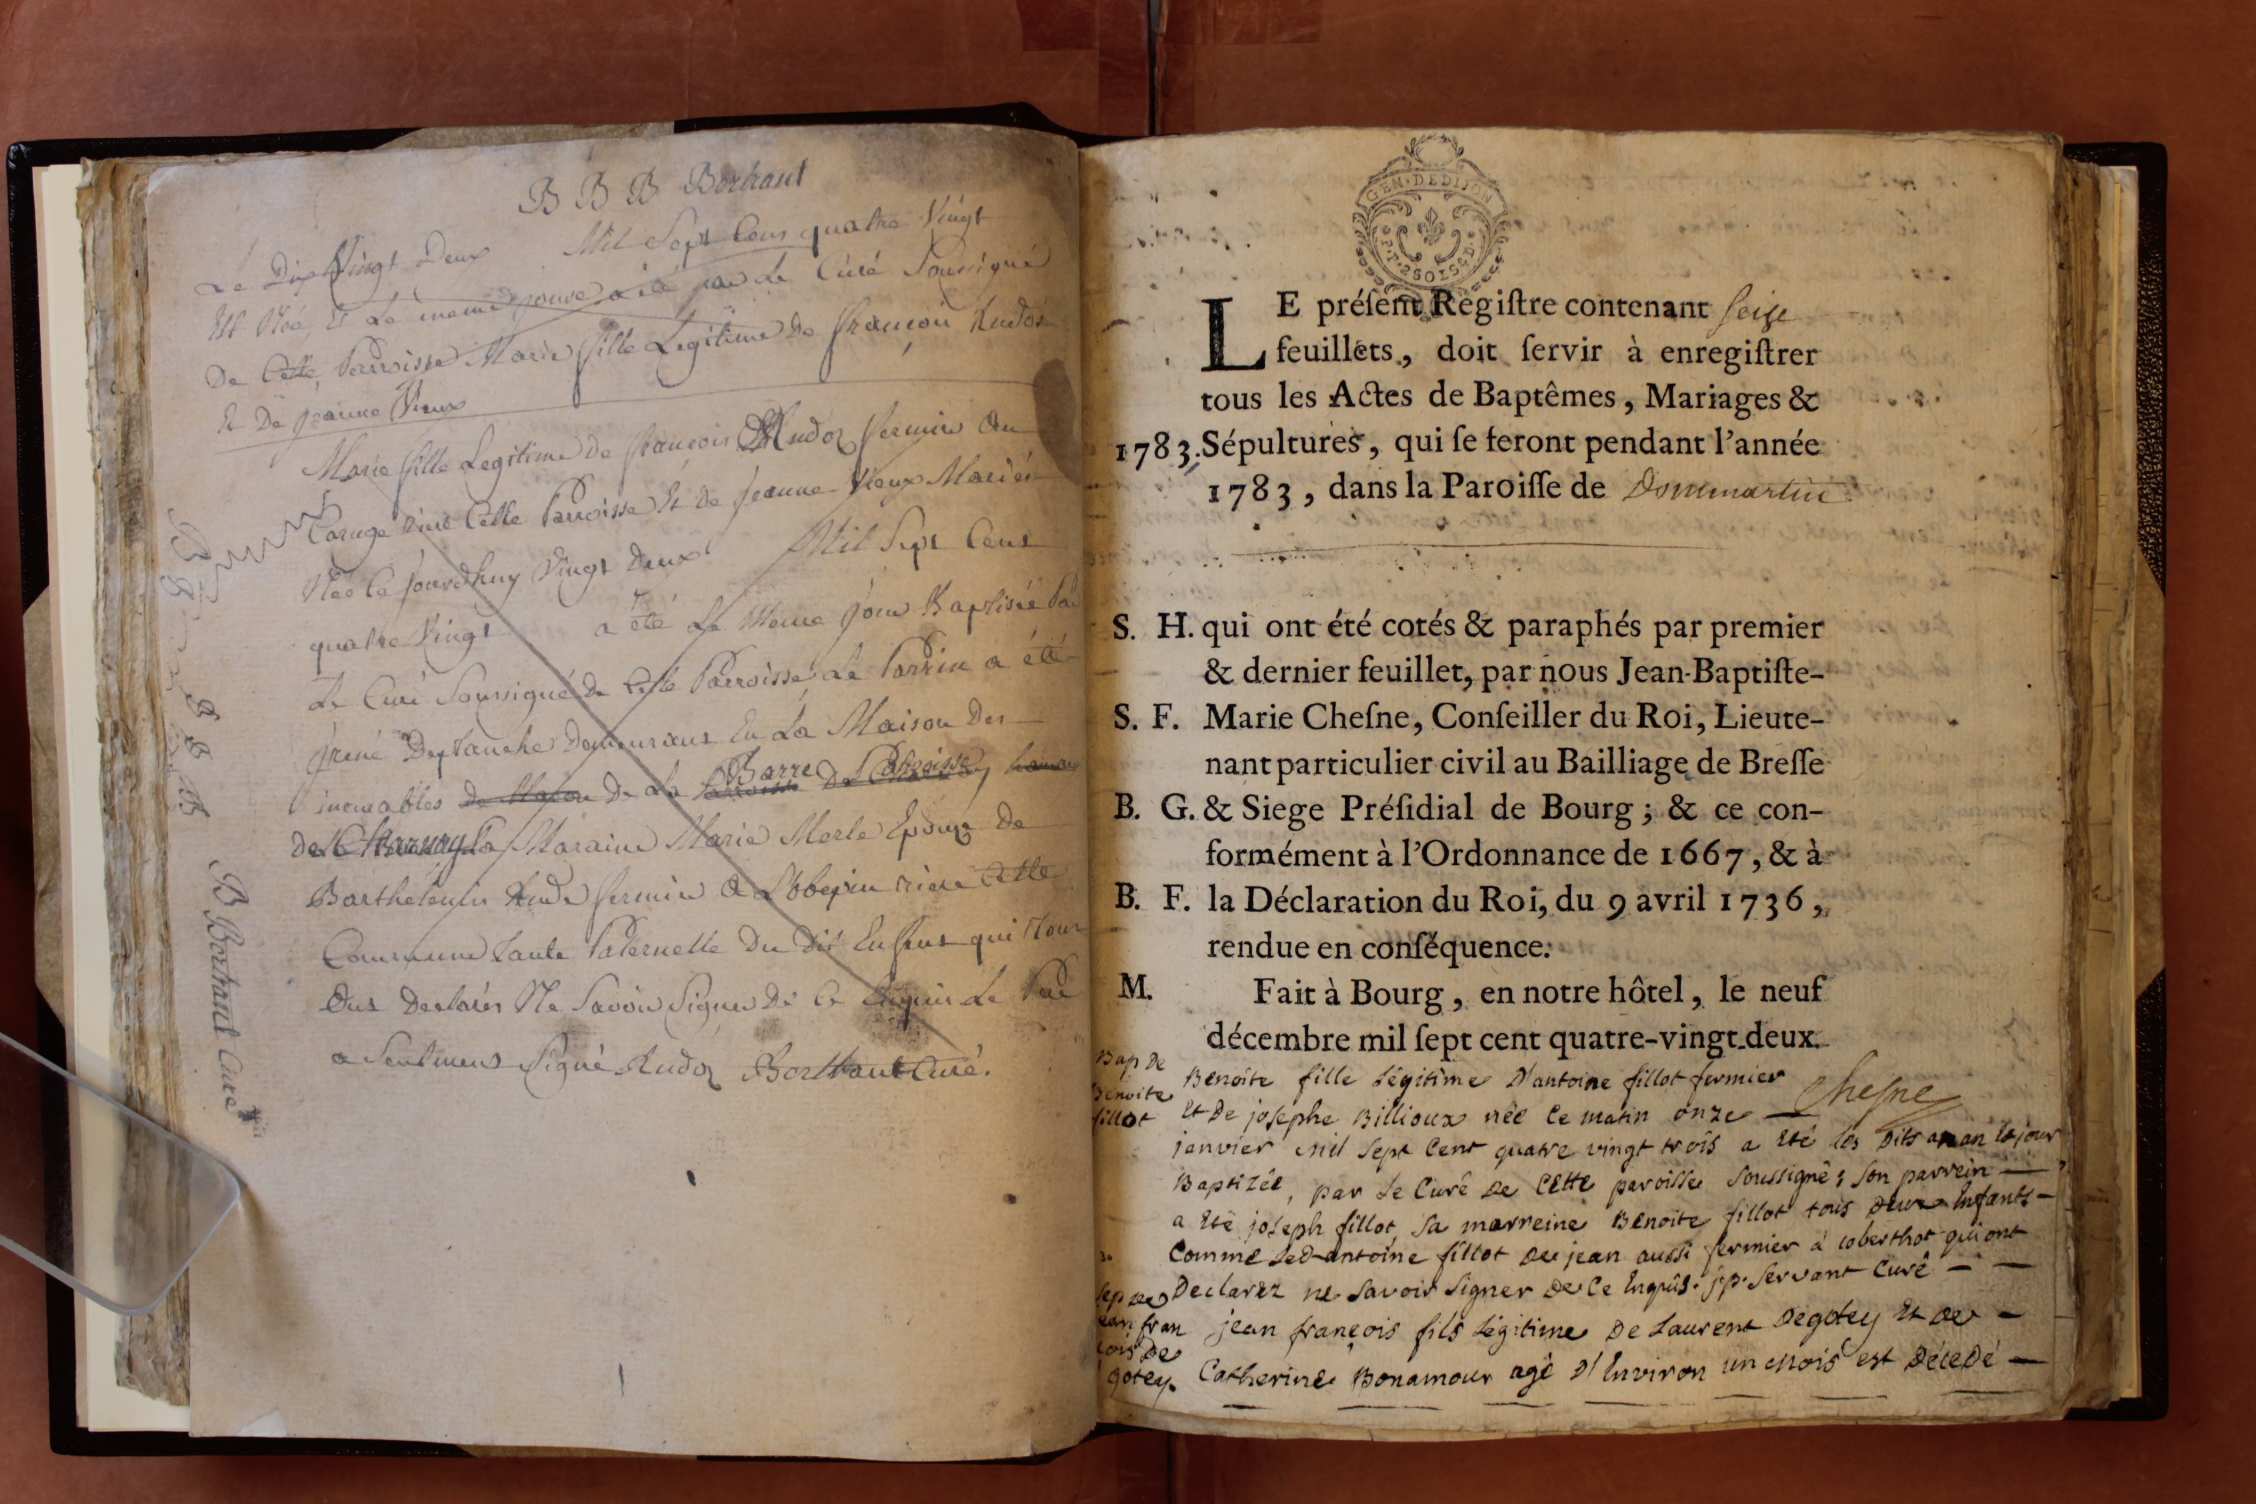 B B B Borthaut
Le Dix Vingt Deux Mil Sept Cens quatre Vingt
Est Née, Et Le meme jour a été par Le Curé Soussigné
De Cette Parroisse Marie fille Legitime De françois
Et De jeanne Vieux
Marie fille Legitime de françois fermier Au
Caruge rière Cette Parroisse Et de jeanne Vieux Mariés
Née Ce jourdhuy Vingt Deux Mil Sept Cens
quatre Vingt a été Le Meme jour Baptisée Par
Le Curé Soussigné De Cette Parroisse Le Parrin a été
Demeurant En La Maison Des
incurables De Macon De La Barre Parroisse
De Charnay La Maraine Marie Merle Epouse De
Barthelemis fermier A rière Cette
Commune tante Paternelle Du Dit Enfant qui N'ont
Ons Declarés Ne Savoir Signer De Ce Enquis Le Pere
a Seulement Signé Borthaut Curé.
B Borthaut Curé
GEN·DEDIJON
LE préſent Regiſtre contenant ſeize
feuillets, doit ſervir à enregiſtrer
tous les Actes de Baptêmes, Mariages &
1783. Sépultures, qui ſe feront pendant l'année
1783, dans la Paroiſſe de Dommartin
S. H. qui ont été cotés & paraphés par premier
& dernier feuillet, par nous Jean-Baptiſte-
S. F. Marie Cheſne, Conſeiller du Roi, Lieute-
nant particulier civil au Bailliage de Breſſe
B. G. & Siege Préſidial de Bourg ; & ce con-
formément à l'Ordonnance de 1667, & à
B. F. la Déclaration du Roi, du 9 avril 1736,
rendue en conſéquence.
M. Fait à Bourg, en notre hôtel, le neuf
décembre mil ſept cent quatre-vingt-deux.
Cheſne
Bap De
Benoite
fillot
Benoite fille Légitime D'antoine fillot fermier
Et De josephe Billioux née Ce matin onze —
janvier mil Sept Cent quatre vingt trois a Eté les Dits an Et jour
Baptizée, par Le Curé De Cette paroisse Soussigné ; Son parrein —
a Eté joseph fillot, Sa marreine Benoite fillot tous Deux Enfants —
Comme Led antoine fillot De jean aussi fermier à qui ont
Declarez ne Savoir Signer De Ce Enquis. j.p. Servant Curé — —
Sep De
jean fran
cois De
gotey.
jean françois fils Légitime De Laurent Degotey Et De —
Catherine Bonamour agé D'Environ un mois est Décedé —